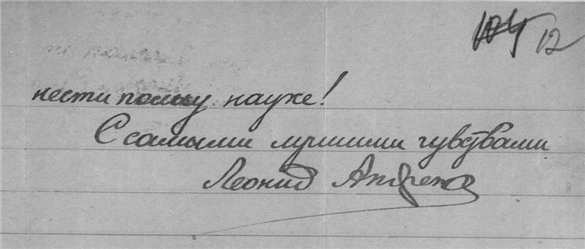 12
нести пользу науке!
С самыми лучшими чувствами
Леонид